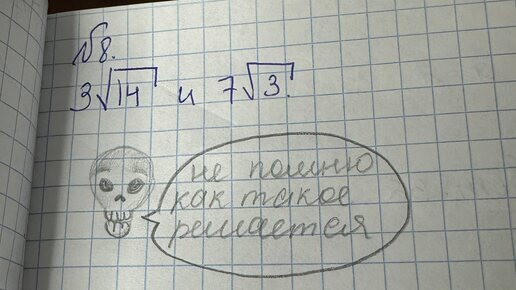 №8.
3√14 и 7√3.
не помню
как такое
решается